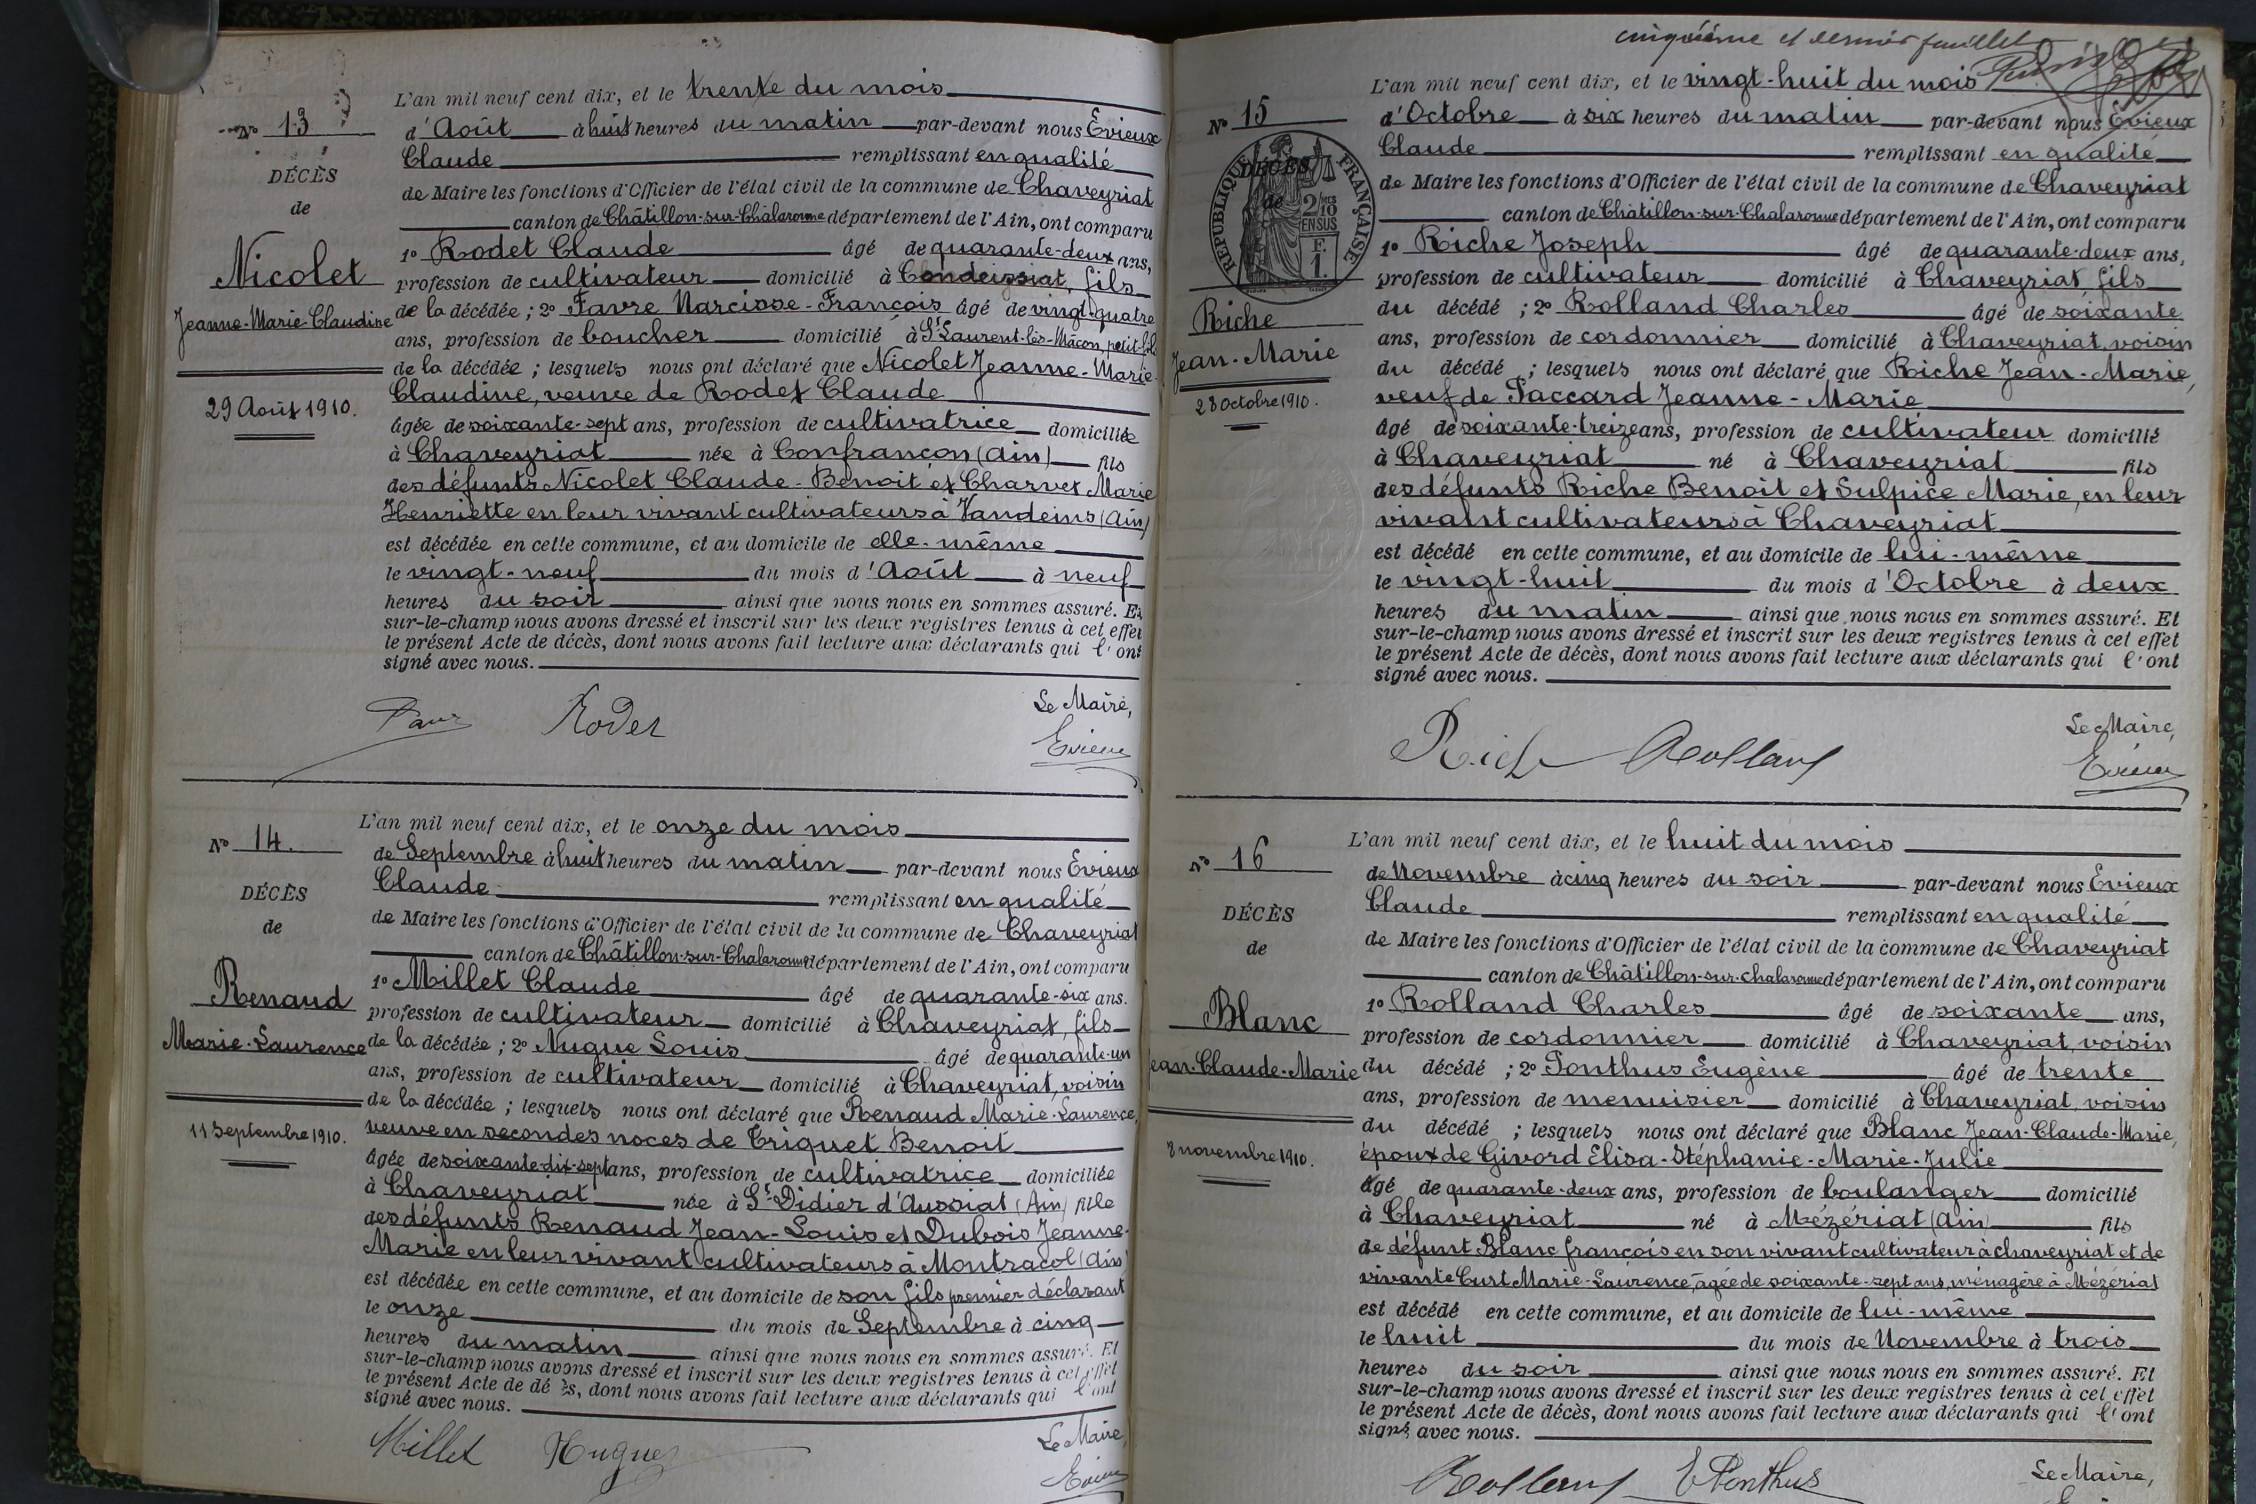 L'an mil neuf cent dix, et le trente du mois
N° 13
d'Août à huit heures du matin par-devant nous Evieux
Claude remplissant en qualité
DÉCÈS
de Maire les fonctions d'Officier de l'état civil de la commune de Chaveyriat
de
canton de Châtillon-sur-Chalaronne département de l'Ain, ont comparu
1° Rodet Claude âgé de quarante-deux ans,
Nicolet
profession de cultivateur domicilié à Condeissiat, fils
Jeanne-Marie-Claudine
de la décédée ; 2° Favre Narcisse-François âgé de vingt-quatre
ans, profession de boucher domicilié à St Laurent-lès-Mâcon, petit-fils
de la décédée ; lesquels nous ont déclaré que Nicolet Jeanne-Marie-
Claudine, veuve de Rodet Claude
29 Août 1910.
âgée de soixante-sept ans, profession de cultivatrice domiciliée
à Chaveyriat née à Confrançon (Ain) fils
des défunts Nicolet Claude-Benoit et Charvet Marie
Henriette en leur vivant cultivateurs à Vandeins (Ain)
est décédée en cette commune, et au domicile de elle-même
le vingt-neuf du mois d'Août à neuf
heures du soir ainsi que nous nous en sommes assuré. Et
sur-le-champ nous avons dressé et inscrit sur les deux registres tenus à cet effet
le présent Acte de décès, dont nous avons fait lecture aux déclarants qui l'ont
signé avec nous.
Le Maire,
Favre Rodet Evieux
L'an mil neuf cent dix, et le onze du mois
N° 14.
de Septembre à huit heures du matin par-devant nous Evieux
Claude remplissant en qualité
DÉCÈS
de Maire les fonctions d'Officier de l'état civil de la commune de Chaveyriat
de
canton de Châtillon-sur-Chalaronne département de l'Ain, ont comparu
1° Millet Claude âgé de quarante-six ans.
Renaud
profession de cultivateur domicilié à Chaveyriat, fils
Marie-Laurence
de la décédée ; 2° Nugue Louis âgé de quarante-un
ans, profession de cultivateur domicilié à Chaveyriat, voisin
de la décédée ; lesquels nous ont déclaré que Renaud Marie-Laurence,
11 Septembre 1910.
veuve en secondes noces de Triquet Benoit
âgée de soixante-dix-sept ans, profession de cultivatrice domiciliée
à Chaveyriat née à St Didier d'Aussiat (Ain) fille
des défunts Renaud Jean-Louis et Dubois Jeanne-
Marie en leur vivant cultivateurs à Montracol (Ain)
est décédée en cette commune, et au domicile de son fils premier déclarant
le onze du mois de Septembre à cinq
heures du matin ainsi que nous nous en sommes assuré. Et
sur-le-champ nous avons dressé et inscrit sur les deux registres tenus à cet effet
le présent Acte de décès, dont nous avons fait lecture aux déclarants qui l'ont
signé avec nous.
Le Maire,
Millet Nugue Evieux
cinquième et dernier feuillet
L'an mil neuf cent dix, et le vingt-huit du mois
N° 15
d'Octobre à six heures du matin par-devant nous Evieux
Claude remplissant en qualité
DÉCÈS
de
RÉPUBLIQUE FRANÇAISE
2/10 EN SUS
F. 1.
de Maire les fonctions d'Officier de l'état civil de la commune de Chaveyriat
canton de Châtillon-sur-Chalaronne département de l'Ain, ont comparu
1° Riche Joseph âgé de quarante-deux ans,
profession de cultivateur domicilié à Chaveyriat, fils
Riche
du décédé ; 2° Rolland Charles âgé de soixante
Jean-Marie
ans, profession de cordonnier domicilié à Chaveyriat, voisin
du décédé ; lesquels nous ont déclaré que Riche Jean-Marie,
28 Octobre 1910.
veuf de Paccard Jeanne-Marie
âgé de soixante-treize ans, profession de cultivateur domicilié
à Chaveyriat né à Chaveyriat fils
des défunts Riche Benoit et Sulpice Marie, en leur
vivant cultivateurs à Chaveyriat
est décédé en cette commune, et au domicile de lui-même
le vingt-huit du mois d'Octobre à deux
heures du matin ainsi que nous nous en sommes assuré. Et
sur-le-champ nous avons dressé et inscrit sur les deux registres tenus à cet effet
le présent Acte de décès, dont nous avons fait lecture aux déclarants qui l'ont
signé avec nous.
Le Maire,
Riche Rolland Evieux
L'an mil neuf cent dix, et le huit du mois
N° 16
de Novembre à cinq heures du soir par-devant nous Evieux
Claude remplissant en qualité
DÉCÈS
de Maire les fonctions d'Officier de l'état civil de la commune de Chaveyriat
de
canton de Châtillon-sur-chalaronne département de l'Ain, ont comparu
1° Rolland Charles âgé de soixante ans,
Blanc
profession de cordonnier domicilié à Chaveyriat, voisin
Jean-Claude-Marie
du décédé ; 2° Ponthus Eugène âgé de trente
ans, profession de menuisier domicilié à Chaveyriat, voisin
du décédé ; lesquels nous ont déclaré que Blanc Jean-Claude-Marie,
8 novembre 1910.
époux de Givord Elisa-Stéphanie-Marie-Julie
âgé de quarante-deux ans, profession de boulanger domicilié
à Chaveyriat né à Mézériat (Ain) fils
de défunt Blanc françois en son vivant cultivateur à chaveyriat et de
vivante Curt Marie-Laurence, âgée de soixante-sept ans, ménagère à Mézériat
est décédé en cette commune, et au domicile de lui-même
le huit du mois de Novembre à trois
heures du soir ainsi que nous nous en sommes assuré. Et
sur-le-champ nous avons dressé et inscrit sur les deux registres tenus à cet effet
le présent Acte de décès, dont nous avons fait lecture aux déclarants qui l'ont
signé avec nous.
Le Maire,
Rolland E Ponthus